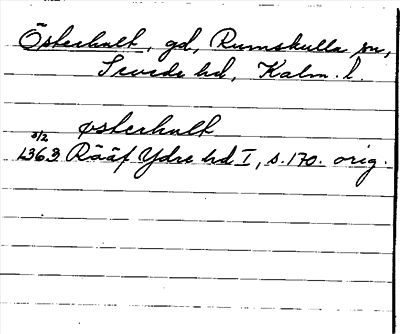 Österhult, gd, Rumskulla sn,
Sevede hd, Kalm. l.
østerhult
3/2 1363 Rääf Ydre hd I, s. 170. orig.